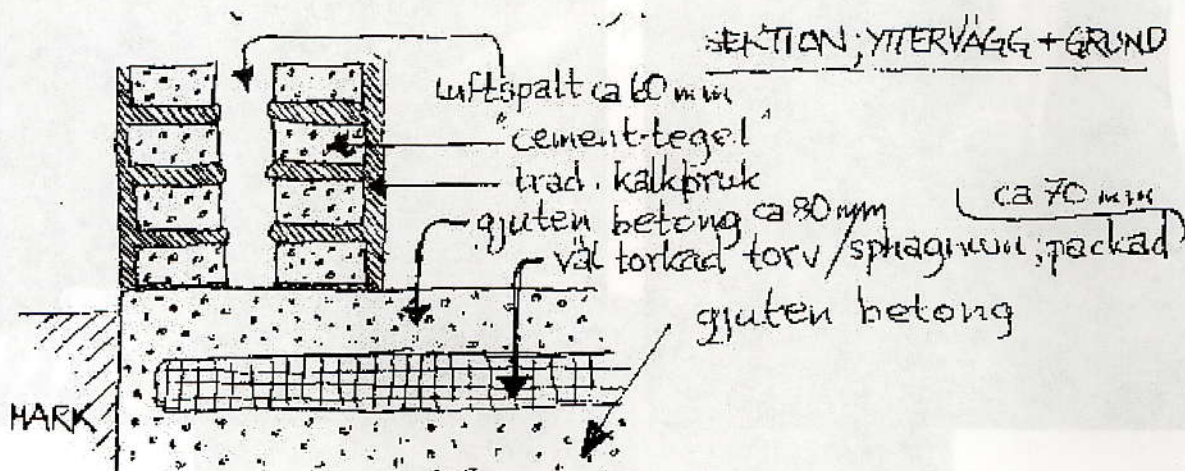 SEKTION; YTTERVÄGG + GRUND
luftspalt ca 60 mm
"cement-tegel"
trad. kalkbruk
gjuten betong ca 80 mm
ca 70 mm
väl torkad torv/sphagnum; packad
gjuten betong
MARK